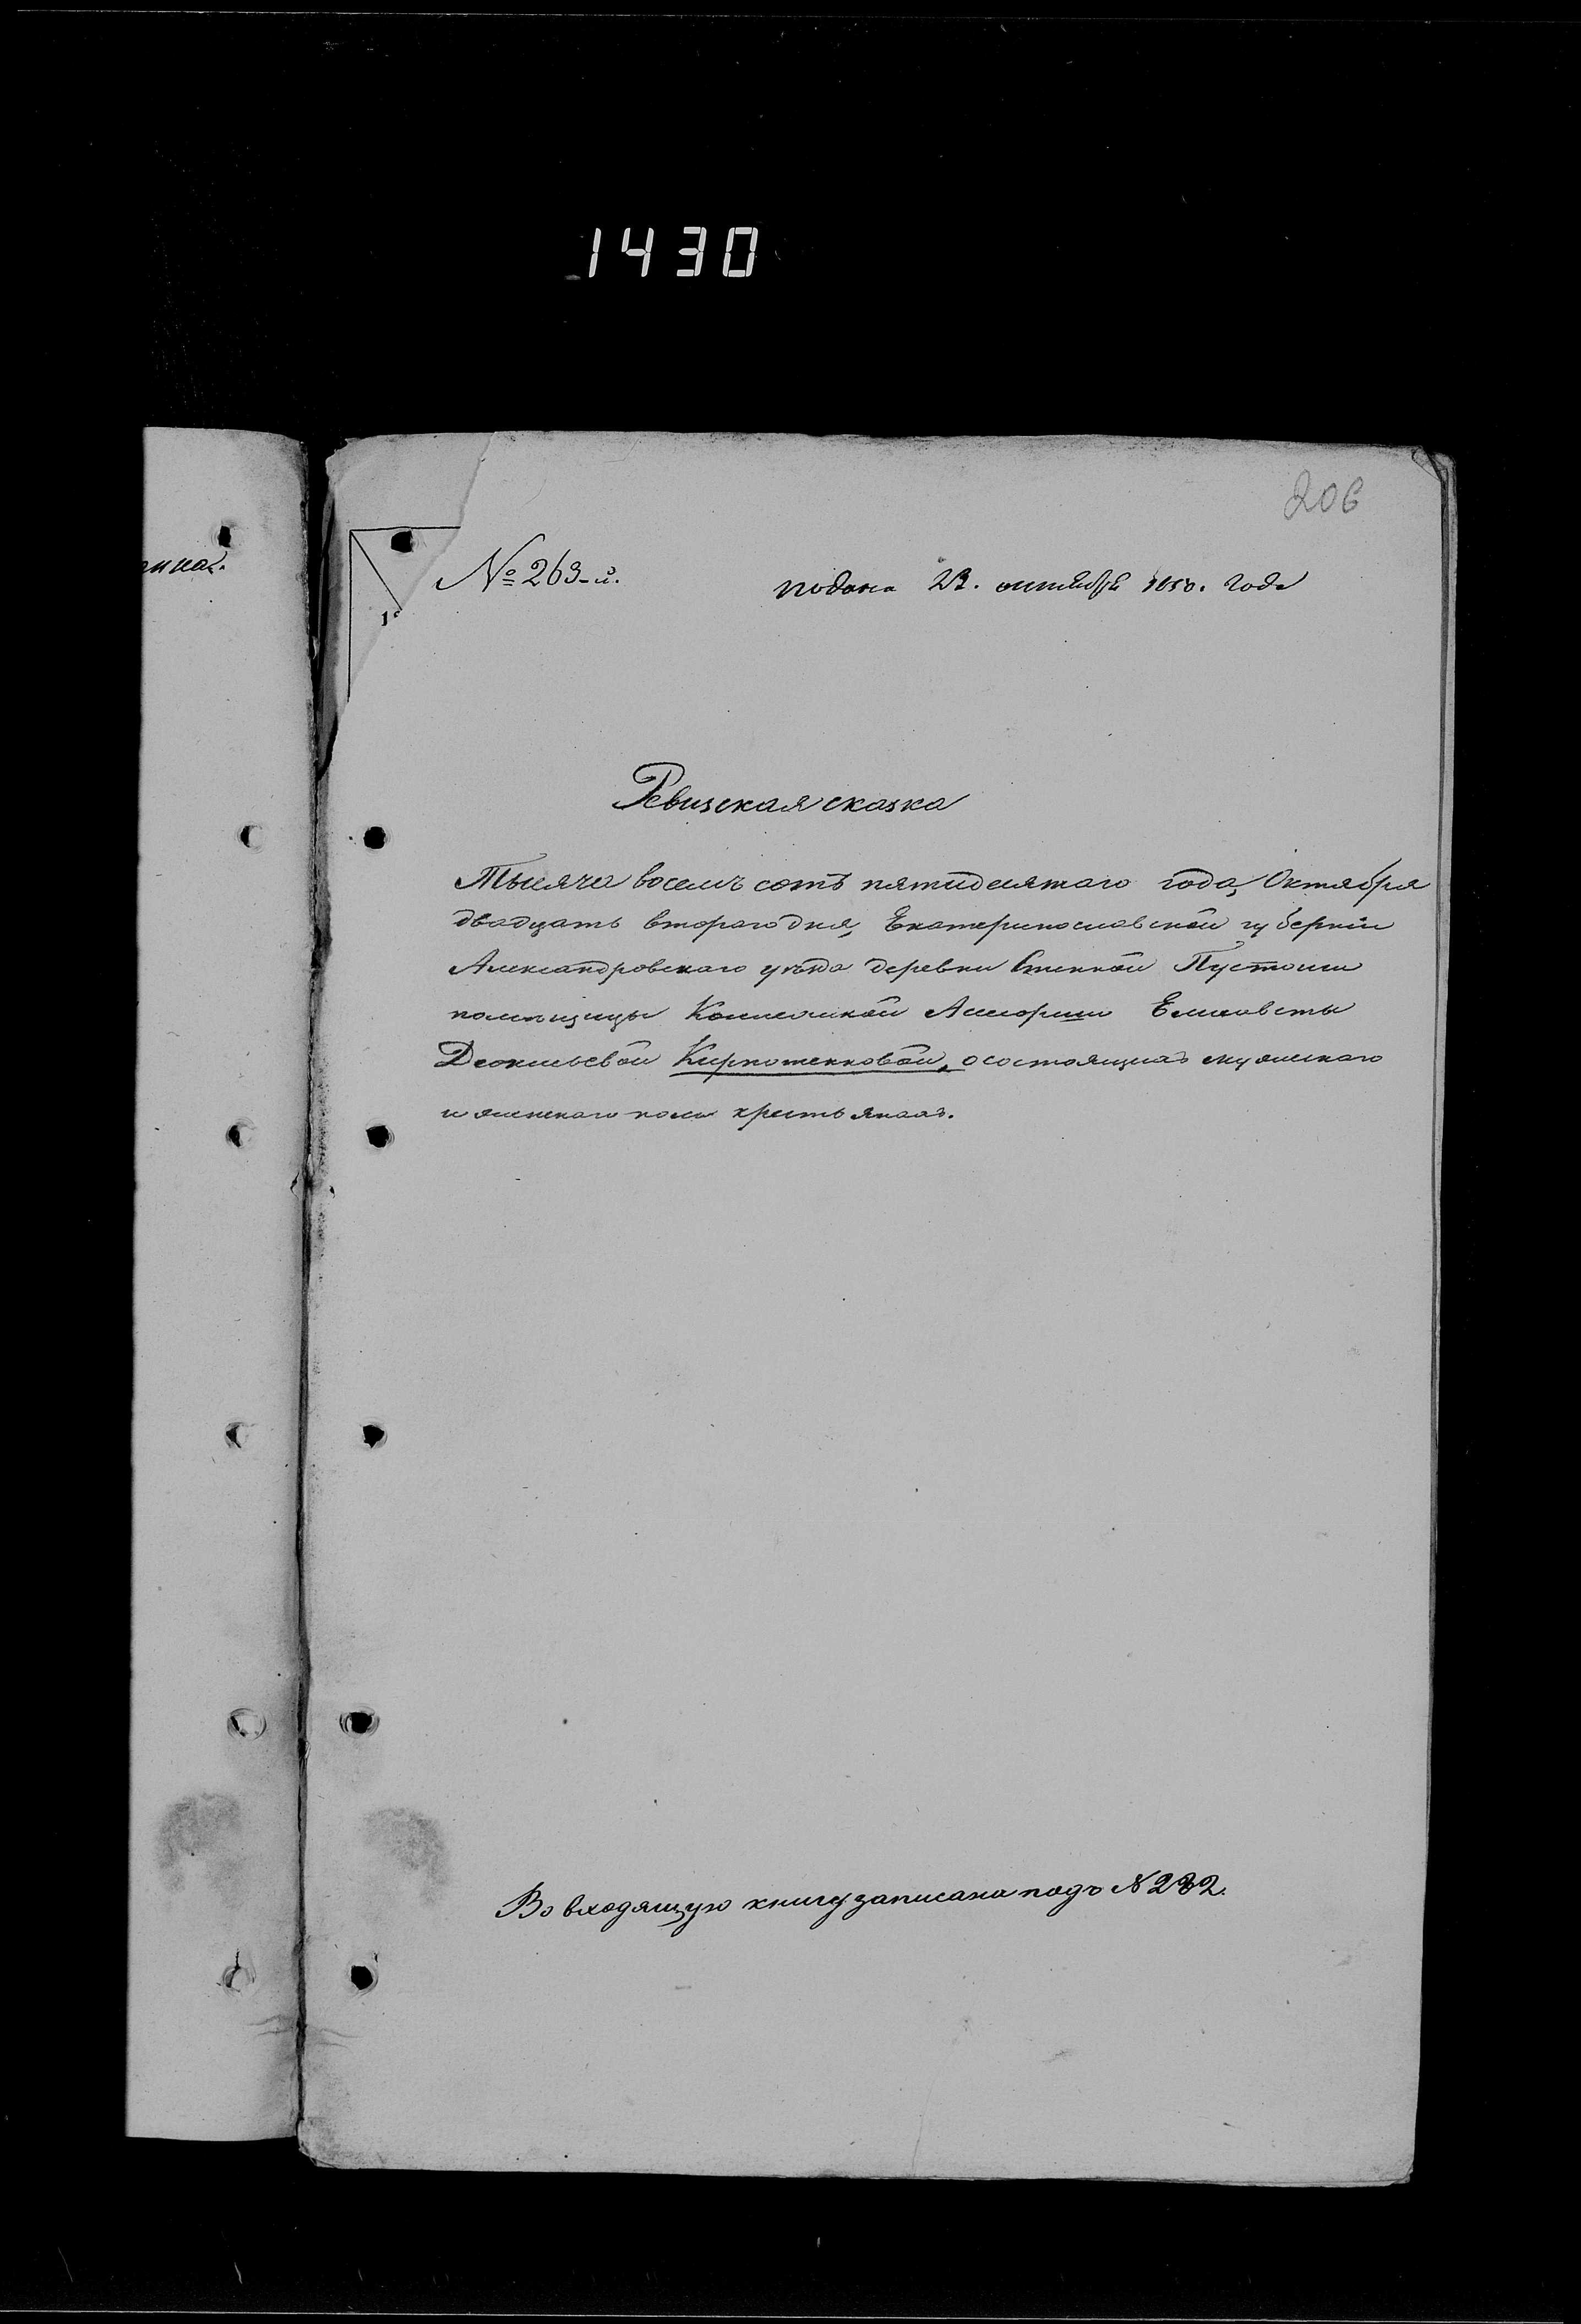 1430
206
№ 263-й.
подана 22. октября 1850. года
Ревизская сказка
Тысяча восемь сотъ пятидесятаго года, Октября
двадцать втораго дня, Екатеринославской губерніи
Александровскаго уѣзда деревни Пустоши
помѣщицы Коллежской Ассесорши Елисаветы
Кирпотенковой, о состоящихъ мужескаго
и женскаго пола крестьянахъ.
Во входящую книгу записана подъ № 232.